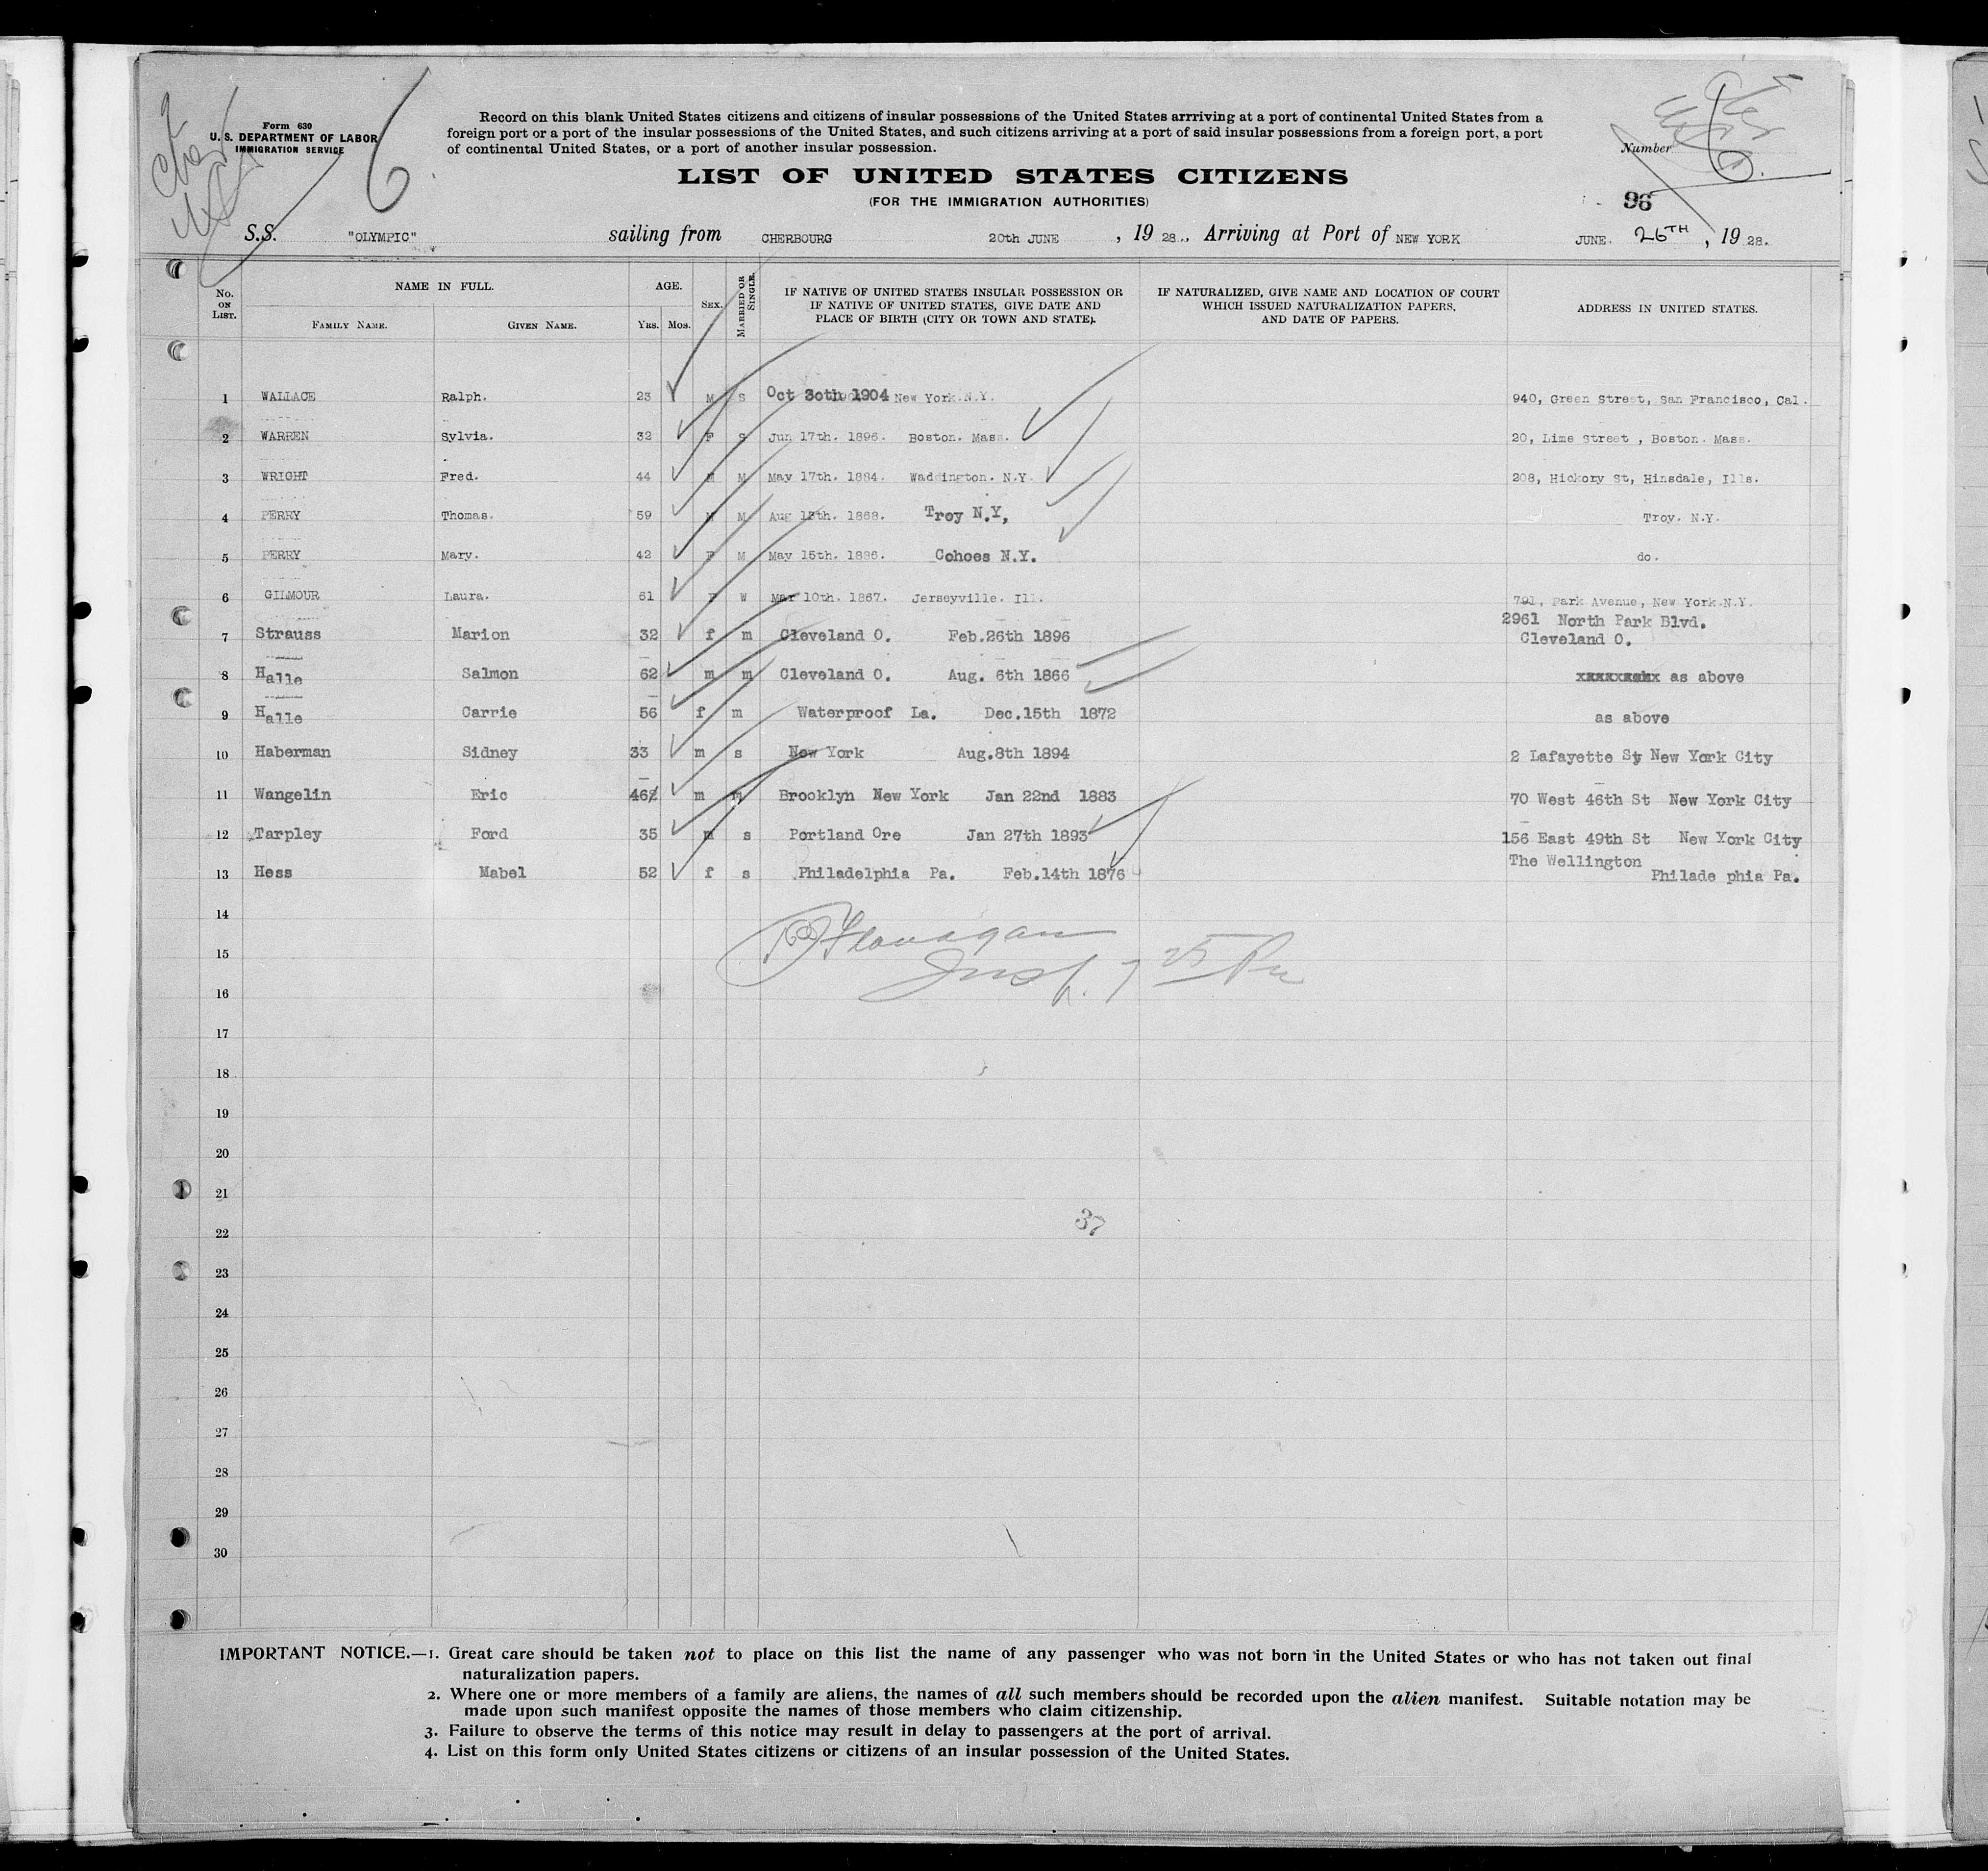 Form 630
U. S. DEPARTMENT OF LABOR
IMMIGRATION SERVICE
6
Record on this blank United States citizens and citizens of insular possessions of the United States arrriving at a port of continental United States from a
foreign port or a port of the insular possessions of the United States, and such citizens arriving at a port of said insular possessions from a foreign port, a port
of continental United States, or a port of another insular possession.
Number
LIST OF UNITED STATES CITIZENS
(FOR THE IMMIGRATION AUTHORITIES)
96
S.S. "OLYMPIC" sailing from CHERBOURG 20th JUNE , 19 28., Arriving at Port of NEW YORK JUNE. 26TH , 19 28.
No. ON LIST. NAME IN FULL. FAMILY NAME. GIVEN NAME. AGE. YRS. MOS. SEX. MARRIED OR SINGLE. IF NATIVE OF UNITED STATES INSULAR POSSESSION OR IF NATIVE OF UNITED STATES, GIVE DATE AND PLACE OF BIRTH (CITY OR TOWN AND STATE). IF NATURALIZED, GIVE NAME AND LOCATION OF COURT WHICH ISSUED NATURALIZATION PAPERS, AND DATE OF PAPERS. ADDRESS IN UNITED STATES.
1 WALLACE Ralph. 23 M S Oct 30th 1904 New York.N.Y. 940, Green Street, San Francisco, Cal.
2 WARREN Sylvia. 32 F S Jun 17th. 1896. Boston. Mass. 20, Lime Street , Boston. Mass.
3 WRIGHT Fred. 44 M M May 17th. 1884. Waddington. N.Y. 208, Hickory St, Hinsdale, Ills.
4 PERRY Thomas. 59 M M Aug 12th. 1868. Troy N.Y, Troy. N.Y.
5 PERRY Mary. 42 F M May 15th. 1886. Cohoes N.Y. do.
6 GILMOUR Laura. 61 F W Mar 10th. 1867. Jerseyville. Ill. 791, Park Avenue, New York.N.Y.
7 Strauss Marion 32 f m Cleveland O. Feb.26th 1896 2961 North Park Blvd.
Cleveland O.
8 Halle Salmon 62 m m Cleveland O. Aug. 6th 1866 as above
9 Halle Carrie 56 f m Waterproof La. Dec.15th 1872 as above
10 Haberman Sidney 33 m s New York Aug.8th 1894 2 Lafayette St New York City
11 Wangelin Eric 46 m m Brooklyn New York Jan 22nd 1883 70 West 46th St New York City
12 Tarpley Ford 35 m s Portland Ore Jan 27th 1893 156 East 49th St New York City
13 Hess Mabel 52 f s Philadelphia Pa. Feb.14th 1876 The Wellington
Philade phia Pa.
14
Flanagan
15
Insp.
16
17
18
19
20
21
22
37
23
24
25
26
27
28
29
30
IMPORTANT NOTICE.—1. Great care should be taken not to place on this list the name of any passenger who was not born in the United States or who has not taken out final
naturalization papers.
2. Where one or more members of a family are aliens, the names of all such members should be recorded upon the alien manifest. Suitable notation may be
made upon such manifest opposite the names of those members who claim citizenship.
3. Failure to observe the terms of this notice may result in delay to passengers at the port of arrival.
4. List on this form only United States citizens or citizens of an insular possession of the United States.